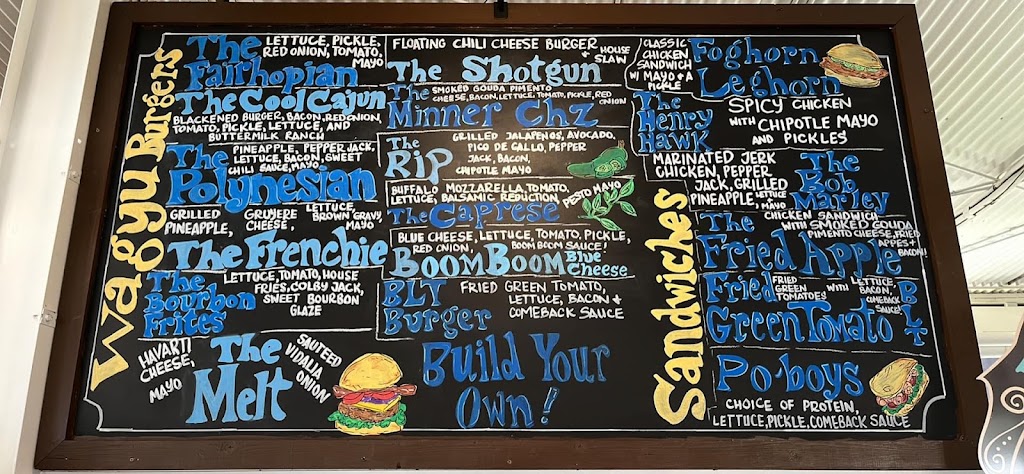 Wagyu Burgers
The
Fairhopian
LETTUCE, PICKLE,
RED ONION, TOMATO,
MAYO
The Cool Cajun
BLACKENED BURGER, BACON, RED ONION,
TOMATO, PICKLE, LETTUCE, AND
BUTTERMILK RANCH
The
Polynesian
PINEAPPLE, PEPPER JACK,
LETTUCE, BACON, SWEET
CHILI SAUCE, MAYO
GRILLED
PINEAPPLE,
GRUYERE
CHEESE,
LETTUCE,
BROWN GRAVY,
MAYO
The Frenchie
The
Bourbon
Frites
LETTUCE, TOMATO, HOUSE
FRIES, COLBY JACK,
SWEET BOURBON
GLAZE
HAVARTI
CHEESE,
MAYO
The
Melt
SAUTEED
VIDALIA
ONION
FLOATING CHILI CHEESE BURGER
+ HOUSE
SLAW
The Shotgun
The
Minner Chz
SMOKED GOUDA PIMENTO
CHEESE, BACON, LETTUCE, TOMATO, PICKLE, RED
ONION
The
Rip
GRILLED JALAPENOS, AVOCADO,
PICO DE GALLO, PEPPER
JACK, BACON,
CHIPOTLE MAYO
BUFFALO MOZZARELLA, TOMATO,
LETTUCE, BALSAMIC REDUCTION, PESTO MAYO
The Caprese
BLUE CHEESE, LETTUCE, TOMATO, PICKLE,
RED ONION, BOOM BOOM SAUCE!
BOOM BOOM Blue
Cheese
BLT
Burger
FRIED GREEN TOMATO,
LETTUCE, BACON +
COMEBACK SAUCE
Build Your
Own!
Sandwiches
CLASSIC
CHICKEN
SANDWICH
W/ MAYO + A
PICKLE
Foghorn
Leghorn
The
Henry
Hawk
SPICY CHICKEN
WITH CHIPOTLE MAYO
AND PICKLES
MARINATED JERK
CHICKEN, PEPPER
JACK, GRILLED
PINEAPPLE, LETTUCE
+ MAYO
The
Bob
Marley
The
Fried Apple
CHICKEN SANDWICH
WITH SMOKED GOUDA
PIMENTO CHEESE, FRIED
APPLES +
BACON!
Fried
Green Tomato
BLT
FRIED
GREEN
TOMATOES
WITH
LETTUCE,
BACON,
COMEBACK
SAUCE!
Po'boys
CHOICE OF PROTEIN,
LETTUCE, PICKLE, COMEBACK SAUCE